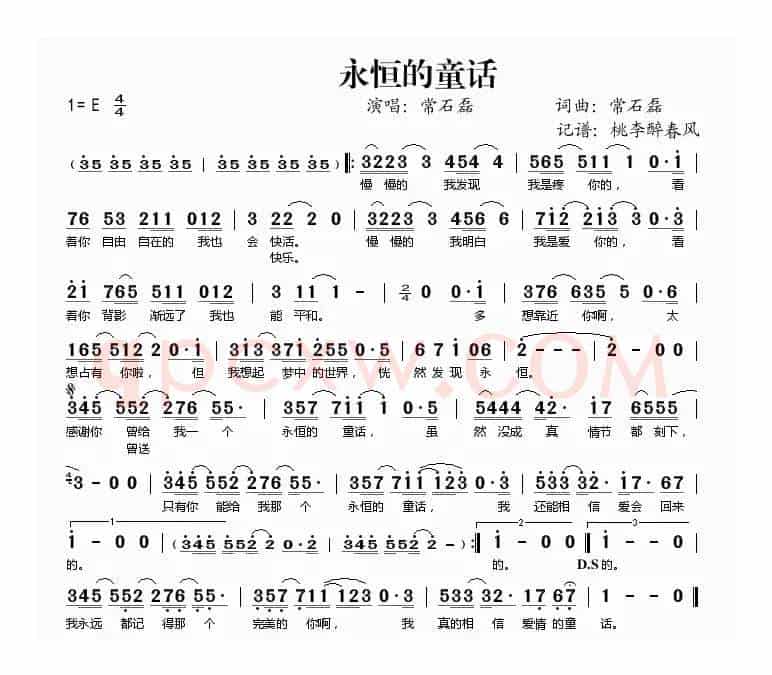 永恒的童话
1= E 4/4 演唱：常石磊 词曲：常石磊
记谱：桃李醉春风
( 35 35 35 35 | 35 35 35 35 ) ‖: 3223 3 454 4 | 565 511 1 0·i
慢 慢的 我发现 我是疼 你的， 看
76 53 211 012 | 3 22 2 0 | 3223 3 456 6 | 712 213 3 0·3
着你 自由 自在的 我也 会 快活。 慢 慢的 我明白 我是爱 你的， 看
快乐。
21 765 511 012 | 3 11 1 - | 2/4 0 0·i | 376 635 5 0·6
着你 背影 渐远了 我也 能 平和。 多 想靠近 你啊， 太
165 512 2 0·i | 313 371 255 0·5 | 6 7 i 06 | 2 - - - | 2 - 0 0
想占有 你啦， 但 我想起 梦中的世界，恍 然发现 永 恒。
345 552 276 55· | 357 711 1 0·5 | 5444 42· 17 6555
感谢你 曾给 我一个 永恒的 童话， 虽 然 没成 真 情节 都 刻下，
曾送
3 - 0 0 | 345 552 276 55· | 357 711 123 0·3 | 533 32· 17· 67
只有你 能给 我那 个 永恒的 童话， 我 还能相 信 爱会 回来
1
2
3
i - 0 0 | ( 345 552 2 00· | 345 552 2 - ) :‖ i - 0 0 | i - 0 0
的。 的。 D.S 的。
345 552 276 55· | 357 711 123 0·3 | 533 32· 17 67 | 1 - - 0 ‖
我永远 都记 得那 个 完美的 你啊， 我 真的相 信 爱情 的童 话。
qpcxw.COM